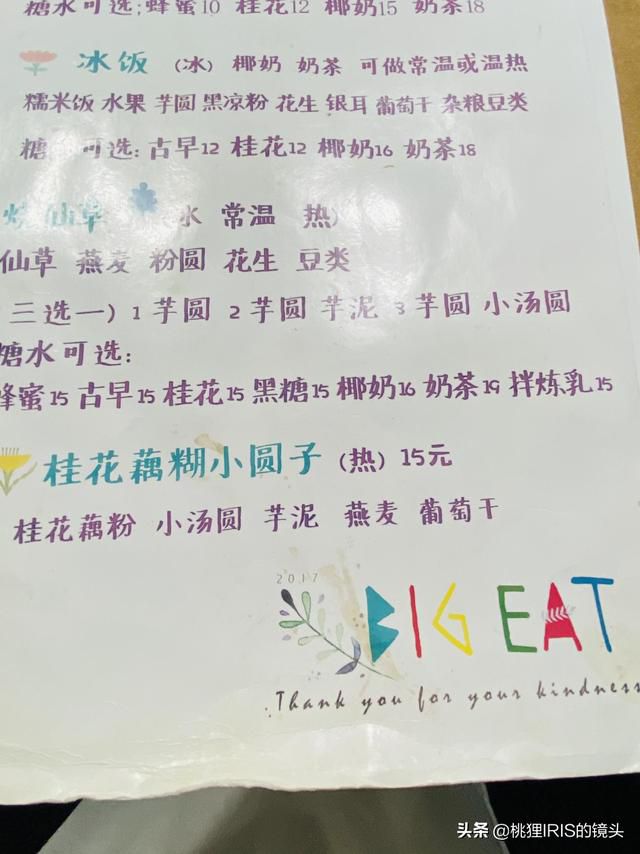 糖水可选:蜂蜜10 桂花12 椰奶15 奶茶18
冰饭 (冰) 椰奶 奶茶 可做常温或温热
糯米饭 水果 芋圆 黑凉粉 花生 银耳 葡萄干 杂粮豆类
糖水可选:古早12 桂花12 椰奶16 奶茶18
烧仙草 (冰 常温 热)
仙草 燕麦 粉圆 花生 豆类
(三选一) 1芋圆 2芋圆 芋泥 3芋圆 小汤圆
糖水可选:
蜂蜜15 古早15 桂花15 黑糖15 椰奶16 奶茶19 拌炼乳15
桂花藕糊小圆子 (热) 15元
桂花藕粉 小汤圆 芋泥 燕麦 葡萄干
2017
BIG EAT
Thank you for your kindness
头条 @桃狸IRIS的镜头